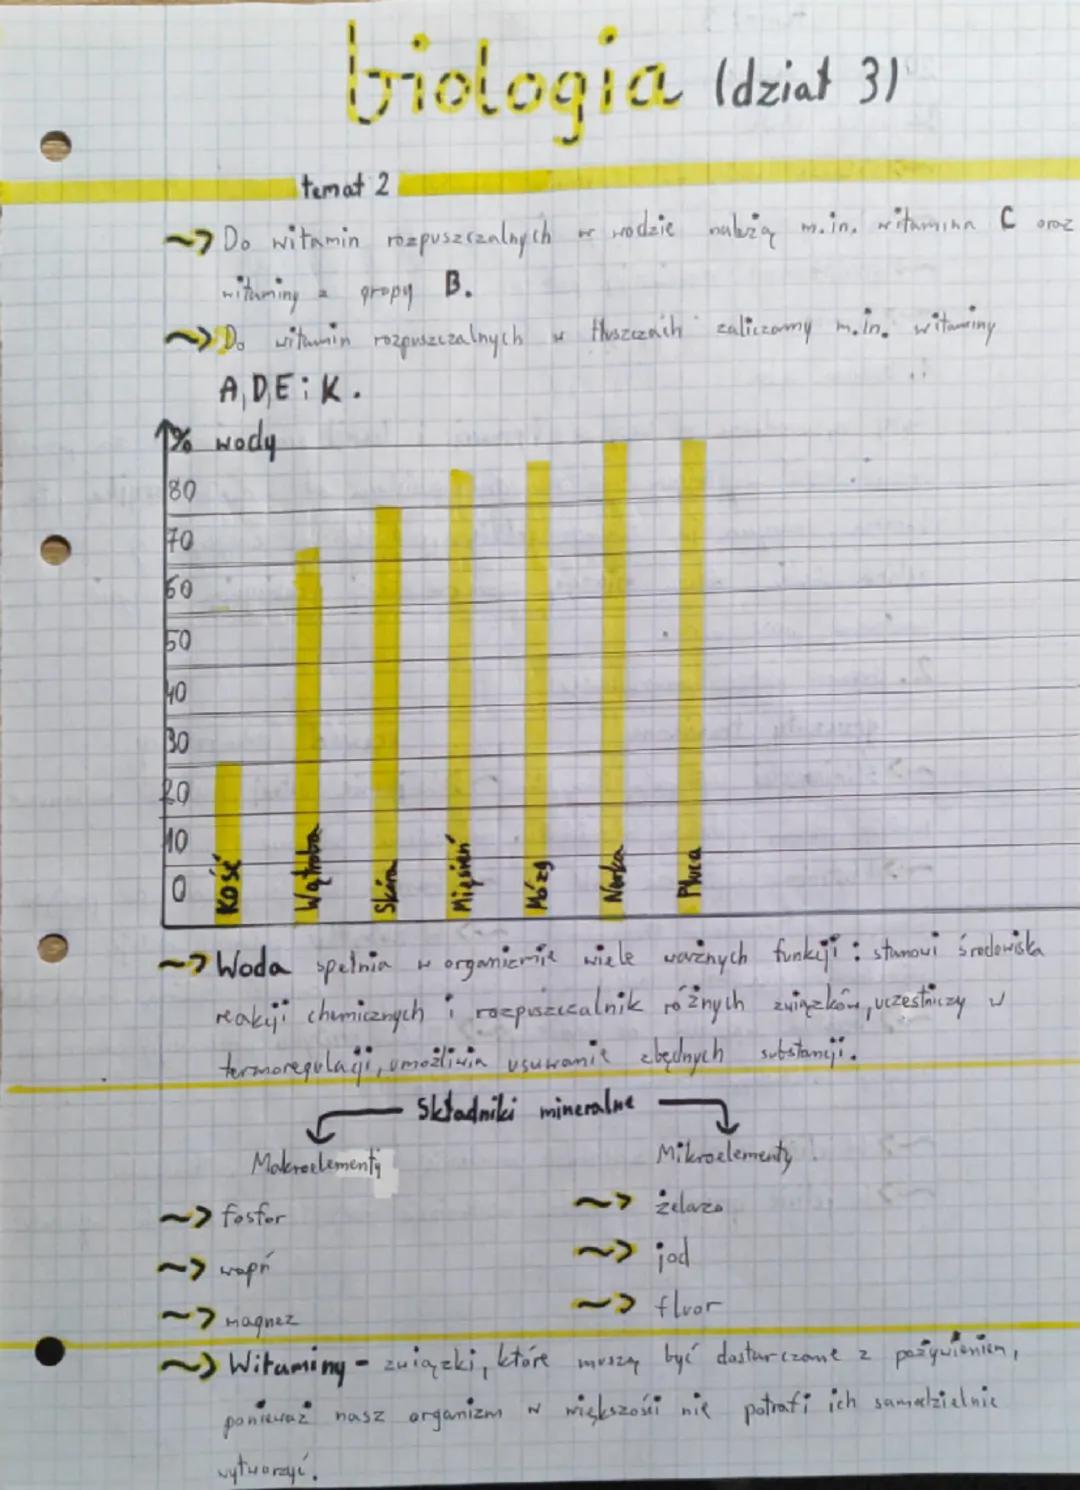 biologia (dział 3)
temat 2
~> Do witamin rozpuszczalnych w wodzie należą m.in. witamina C oraz
witaminy z grupy B.
~> Do witamin rozpuszczalnych w tłuszczach zaliczamy m.in. witaminy
A, D, E i K.
% wody
80
70
60
50
40
30
20
10
0
Kość Wątroba Skóra Mięśień Mózg Nerka Płuca
~> Woda spełnia w organizmie wiele ważnych funkcji : stanowi środowiska
reakcji chemicznych i rozpuszczalnik różnych związków, uczestniczy w
termoregulacji, umożliwia usuwanie zbędnych substancji.
Składniki mineralne
Makroelementy Mikroelementy
~> fosfor ~> żelazo
~> wapń ~> jod
~> magnez ~> fluor
~> Witaminy - związki, które muszą być dostarczane z pożywieniem,
ponieważ nasz organizm w większości nie potrafi ich samodzielnie
wytworzyć.